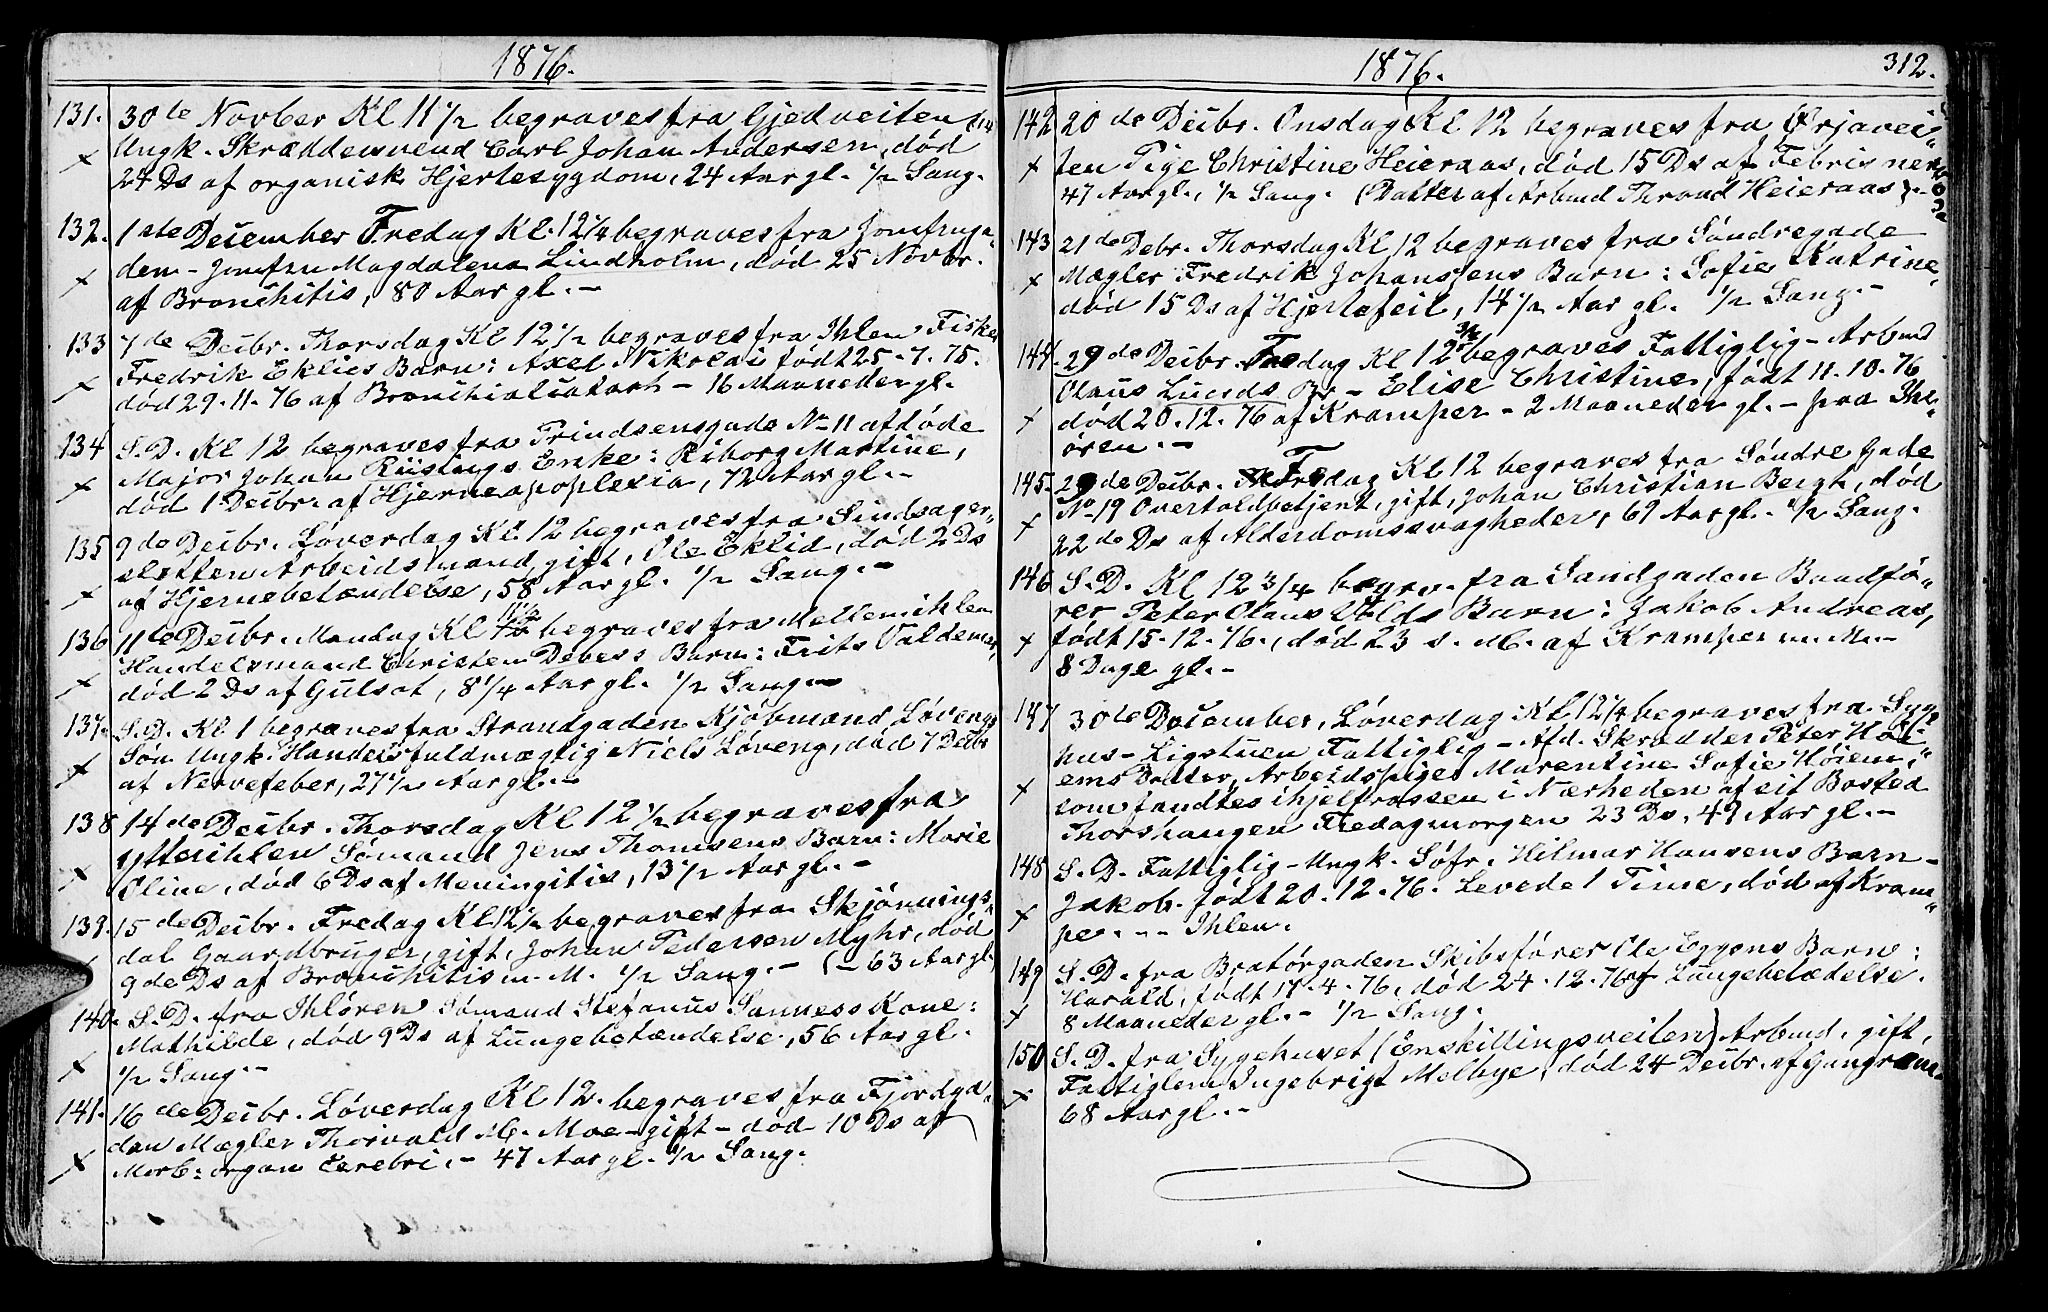 1876.
131. 30te Novber Kl 11 1/2 begraves fra Gjedveiten
Ungk. Skræddersvend Carl Johan Andersen, død
24 Ds af organisk Hjertesygdom, 24 Aar gl. 1/2 Sang.
132. 1ste December Fredag Kl. 12 1/4 begraves fra Jomfruga„
den - Jomfru Magdalena Lindholm, død 25 Novbr.
af Bronchitis, 80 Aar gl. -
133 7de Decbr. Thorsdag Kl 12 1/2 begraves fra Ihlen Fisker
Fredrik Eklies Barn: Axel Nikolai født 25-7.75.
død 29.11.76 af Bronchialcatarh - 16 Maaneder gl.
134 S.D. Kl 12 begraves fra Prindsensgade No 11 afdøde
Major Johan Riisings Enke: Riborg Martine,
død 1 Decbr. af Hjerneapoplexia, 72 Aar gl. -
135 9de Decbr. Løverdag Kl. 12 begraves fra Sindsager„
sletten Arbeidsmand, gift, Ole Eklid, død 2 Ds
af Hjernebetændelse, 58 Aar gl. 1/2 Sang. -
136 11te Decbr. Mandag Kl 11 1/2 begraves fra Mellemihlen
Handelsmand Christen Devess Barn: Frits Valdemar,
død 2 Ds af Gulsot, 8 1/4 Aar gl. 1/2 Sang. -
137. S.D. Kl 1 begraves fra Strandgaden Kjøbmand Løvengs
Søn Ungk. Handelsfuldmægtig Niels Løveng, død 7 Decbr
af Nervefeber, 27 1/2 Aar gl. -
138 14de Decbr. Thorsdag Kl 12 1/2 begraves fra
Ytterihlen Sømand Jens Thomsens Barn: Marie
Oline, død 6 Ds af Meningitis, 13 1/2 Aar gl. -
139. 15de Decbr. Fredag Kl 12 1/2 begraves fra Skjønnings„
dal Gaardbruger, gift, Johan Pedersen Myhr, død
9de Ds af Bronchitis m. M. 1/2 Sang. - (- 63 Aar gl.)
140. S.D. fra Ihløren Sømand Stefanus Sanness Kone:
Mathilde, død 9 Ds af Lungebetændelse, 56 Aar gl.
1/2 Sang -
141. 16de Decbr. Løverdag Kl 12. begraves fra Fjordga„
den Mægler Thorvald M. Moe - gift - død 10 Ds af
Morb: organ Cerebri. - 47 Aar gl. 1/2 Sang.
1876. 312.
142 20de Decbr. Onsdag Kl 12 begraves fra Ørjavei„
ten Pige Christine Heieraas, død 15 Ds af Febris nervosa
47 Aar gl., 1/2 Sang. (Datter af Arbmd Thrond Heieraas). -
143 21de Debr. Thorsdag Kl 12 begraves fra Søndregade
Mægler Fredrik Johansens Barn: Sofie Katrine,
død 15 Ds af Hjertefeil, 14 1/2 Aar gl. 1/2 Sang. -
144. 29de Decbr. Fredag Kl 12 3/4 begraves Fattiglig - Arbmd
Olaus Lunds B - Elise Christine, født 11.10.76
død 20.12.76 af Kramper - 2 Maaneder gl. - paa Ihl„
øren. -
145. 29de Decbr. Fredag Kl 12 begraves fra Søndre Gade
No 19 Overtoldbetjent, gift, Johan Christian Bergh, død
22de Ds af Alderdomssvagheder, 69 Aar gl. 1/2 Sang.
146 S.D. Kl 12 3/4 begrv. fra Sandgaden Baadfø„
rer Peter Olaus Volds Barn: Jakob Andreas,
født 15.12.76., død 23 s. M. af Kramper m. M. -
8 Dage gl. -
147 30te December, Løverdag Kl 12 1/4 begraves fra Syge
hus - Ligstuen Fattiglig - Afd. Skrædder Peter Høi„
ems Datter, Arbeidspige Marentine Sofie Høiem,
som fandtes ihjelfrossen i Nærheden af sit Bosted
Thorshaugen Fredag morgen 23 Ds. 47 Aar gl. -
148 S.D. Fattiglig - Ungk. Søfr. Hilmar Hansens Barn -
Jakob. født 20.12.76. Levede 1 Time, død af Kram„
pe. - - Ihlen.
149 S.D. fra Bratørgaden Skibsfører Ole Eggens Barn:
Harald, født 17.4.76, død 24.12.76 af Lungebetædelse.
8 Maaneder gl. - 1/2 Sang.
150 S.D. fra Sygehuset (Enskillingsveiten) Arbmd, gift,
Fattiglem Ingebrigt Melbye, død 24 Decbr. af Gangræne.
68 Aar gl. -